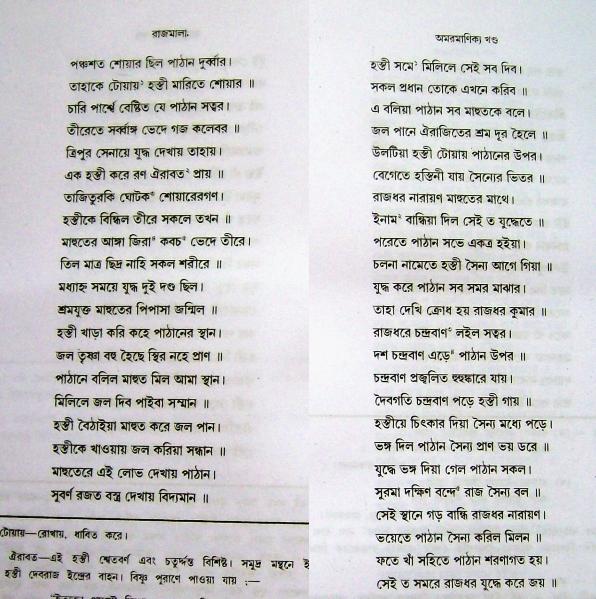 রাজমালা
পঞ্চশত শোয়ার ছিল পাঠান দুর্ব্বার।
তাহাকে টোয়ায়১ হস্তী মারিতে শোয়ার ॥
চারি পার্শ্বে বেষ্টিত যে পাঠান সত্বর।
তীরেতে সর্ব্বাঙ্গ ভেদে গজ কলেবর ॥
ত্রিপুর সেনায়ে যুদ্ধ দেখায় তাহায়।
এক হস্তী করে রণ ঐরাবত২ প্রায় ॥
তাজিতুরকি ঘোটক৩ শোয়ারেরগণ।
হস্তীকে বিন্ধিল তীরে সকলে তখন ॥
মাহুতের আঙ্গা জিরা৪ কবচ৫ ভেদে তীরে।
তিল মাত্র ছিদ্র নাহি সকল শরীরে ॥
মধ্যাহ্ন সময়ে যুদ্ধ দুই দণ্ড ছিল।
শ্রমযুক্ত মাহুতের পিপাসা জন্মিল ॥
হস্তী খাড়া করি কহে পাঠানের স্থান।
জল তৃষ্ণা বহু হৈছে স্থির নহে প্রাণ ॥
পাঠানে বলিল মাহুত মিল আমা স্থান।
মিলিলে জল দিব পাইবা সম্মান ॥
হস্তী বৈঠাইয়া মাহুত করে জল পান।
হস্তীকে খাওয়ায় জল করিয়া সন্ধান ॥
মাহুতেরে এই লোভ দেখায় পাঠান।
সুবর্ণ রজত বস্ত্র দেখায় বিদ্যমান ॥
টোয়ায়—রোখায়, ধাবিত করে।
ঐরাবত—এই হস্তী শ্বেতবর্ণ এবং চতুর্দ্দন্ত বিশিষ্ট। সমুদ্র মন্থনে ই
হস্তী দেবরাজ ইন্দ্রের বাহন। বিষ্ণু পুরাণে পাওয়া যায় :—
অমরমাণিক্য খণ্ড
হস্তী সমে১ মিলিলে সেই সব দিব।
সকল প্রধান তোকে এখনে করিব ॥
এ বলিয়া পাঠান সব মাহুতকে বলে।
জল পানে ঐরাজিতের শ্রম দূর হৈলে ॥
উলটিয়া হস্তী টোয়ায় পাঠানের উপর।
বেগেতে হস্তিনী যায় সৈন্যের ভিতর ॥
রাজধর নারায়ণ মাহুতের মাথে।
ইনাম২ বান্ধিয়া দিল সেই ত যুদ্ধেতে ॥
পরেতে পাঠান সভে একত্র হইয়া।
চলনা নামেতে হস্তী সৈন্য আগে গিয়া ॥
যুদ্ধ করে পাঠান সব সমর মাঝার।
তাহা দেখি ক্রোধ হয় রাজধর কুমার ॥
রাজধরে চন্দ্রবাণ৩ লইল সত্বর।
দশ চন্দ্রবাণ এড়ে৪ পাঠান উপর ॥
চন্দ্রবাণ প্রজ্বলিত হুহুঙ্কারে যায়।
দৈবগতি চন্দ্রবাণ পড়ে হস্তী গায় ॥
হস্তীয়ে চিৎকার দিয়া সৈন্য মধ্যে পড়ে।
ভঙ্গ দিল পাঠান সৈন্য প্রাণ ভয় ডরে ॥
যুদ্ধে ভঙ্গ দিয়া গেল পাঠান সকল।
সুরমা দক্ষিণ বন্দে৫ রাজ সৈন্য বল ॥
সেই স্থানে গড় বান্ধি রাজধর নারায়ণ।
ভয়েতে পাঠান সৈন্য করিল মিলন ॥
ফতে খাঁ সহিতে পাঠান শরণাগত হয়।
সেই ত সমরে রাজধর যুদ্ধে করে জয় ॥